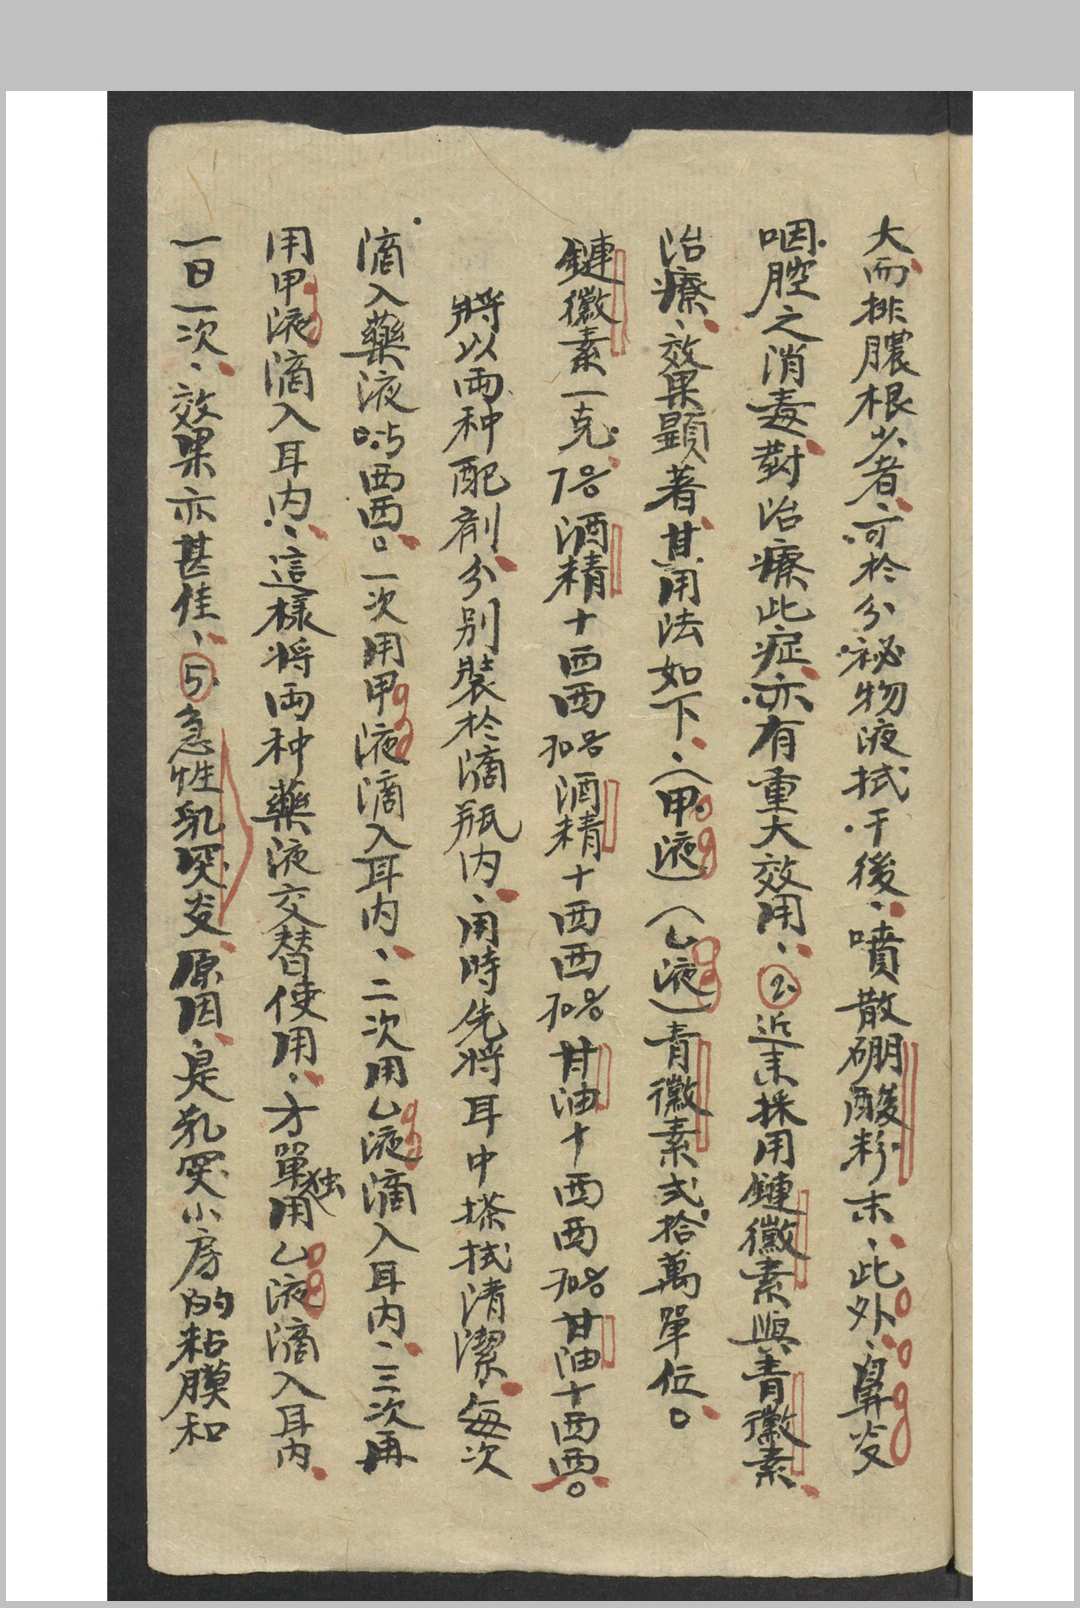 大而排膿根少者、可於分祕物液拭干後、噴散硼酸粉末、此外、鼻炎
咽腔之消毒對治療此症、亦有重大效用、②近來採用鏈黴素與青黴素
治療、效果顯著、其用法如下、(甲液)(乙液)青黴素式拾萬單位。
鏈黴素一克、7%酒精十西西70%酒精十西西70%甘油十西西70%甘油十西西。
將以兩种配剂分别裝於滴瓶内、用時先將耳中搽拭清潔、每次
滴入藥液0.5西西。一次用甲液滴入耳内、二次用乙液滴入耳内、三次再
用甲液滴入耳内、這樣將両种藥液交替使用、方單独用乙液滴入耳内、
一日一次、效果亦甚佳、⑤急性乳突炎原因、是乳突小房的粘膜和